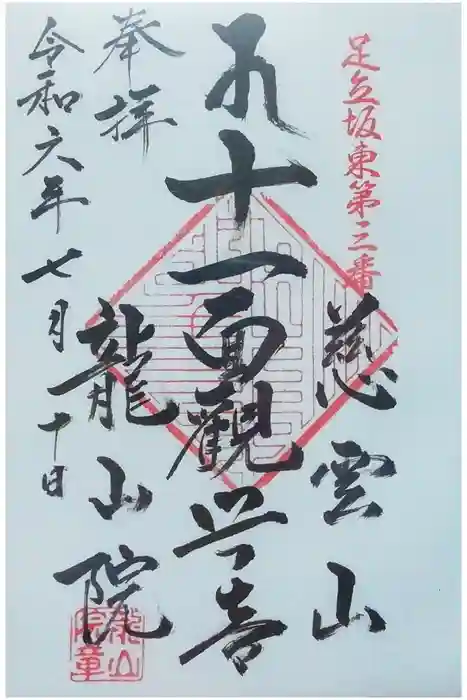 足立坂東第三番
慈雲山
本十一面觀世音
奉拝
龍山院
令和六年七月十日
龍山院章